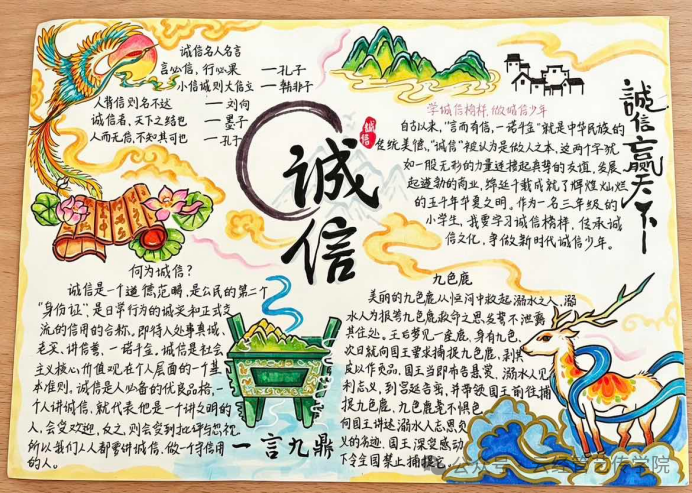 诚信名人名言
言必信，行必果 —孔子
小信诚则大信立 —韩非子
人背信则名不达 —刘向
诚信者，天下之结也 —墨子
人而无信，不知其可也 —孔子
何为诚信？
诚信是一个道德范畴，是公民的第二个
“身份证”，是日常行为的诚实和正式交
流的信用的合称。即待人处事真诚、
老实、讲信誉，一诺千金。诚信是社会
主义核心价值观在个人层面的一个基
本准则。诚信是人必备的优良品格，一
个人讲诚信，就代表他是一个讲文明的
人，会受欢迎，反之，则会受到批评与忽视
所以我们人人都要讲诚信，做一个守信用
的人。
诚信
诚信
一言九鼎
学诚信榜样，做诚信少年
自古以来，“言而有信，一诺千金”就是中华民族的
传统美德，“诚信”被认为是做人之本，这两个字犹
如一股无形的力量连接起真挚的友谊，发展
起蓬勃的商业，绵延千载成就了辉煌灿烂
的五千年华夏之明。作为一名三年级的
小学生，我要学习诚信榜样，传承诚
信文化，争做新时代诚信少年。
誠信赢天下
九色鹿
美丽的九色鹿从恒河中救起溺水之人，溺
水人为报答九色鹿救命之恩，发誓不泄露
其住处。王后梦见一座鹿，身有九色，
次日就向国王要求捕捉九色鹿，剥其
皮以作良品，国王当即布告悬赏，溺水人见
利忘义，到宫廷告密，并带领国王前往捕
捉九色鹿，九色鹿毫不惧色
向国王讲述溺水人忘恩负
义的劣迹，国王深受感动
下令全国禁止捕捉它。
公众号
传学院